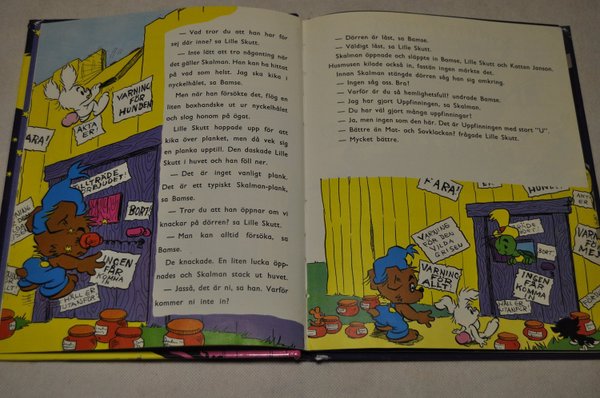 — Vad tror du att han har för
sej där inne? sa Lille Skutt.
— Inte lätt att tro någonting när
det gäller Skalman. Han kan ha hittat
på vad som helst. Jag ska kika i
nyckelhålet, sa Bamse.
Men när han försökte det, flög en
liten boxhandske ut ur nyckelhålet
och slog honom på ögat.
Lille Skutt hoppade upp för att
kika över planket, men då vek sig
en planka upptill. Den daskade Lille
Skutt i huvet och han föll ner.
— Det är inget vanligt plank.
Det är ett typiskt Skalman-plank,
sa Bamse.
— Tror du att han öppnar om vi
knackar på dörren? sa Lille Skutt.
— Man kan alltid försöka, sa
Bamse.
De knackade. En liten lucka öpp-
nades och Skalman stack ut huvet.
— Jasså, det är ni, sa han. Varför
kommer ni inte in?
VARNING
FÖR
HUNDEN
AKTA
ER!
ARA!
TILLTRÄDE
FÖRBJUDET!
BORT!
INGEN
FÅR
KOMMA
IN
HÅLL ER
UTANFÖR!
— Dörren är låst, sa Bamse.
— Väldigt låst, sa Lille Skutt.
Skalman öppnade och släppte in Bamse, Lille Skutt och Katten Janson.
Husmusen kilade också in, fastän ingen märkte det.
Innan Skalman stängde dörren såg han sig omkring.
— Ingen såg oss. Bra!
— Varför är du så hemlighetsfull? undrade Bamse.
— Jag har gjort Uppfinningen, sa Skalman.
— Du har väl gjort många uppfinningar!
— Ja, men ingen som den här. Det är Uppfinningen med stort "U".
— Bättre än Mat- och Sovklockan? frågade Lille Skutt.
— Mycket bättre.
FARA!
HUNDEN
AKTA
ER!
VARNING
FÖR DEN
VILDA
GRISEN
VARNING
FÖR
ALLT!
BORT
INGEN
FÅR
KOMMA
IN
HÅLL ER
UTANFÖR!